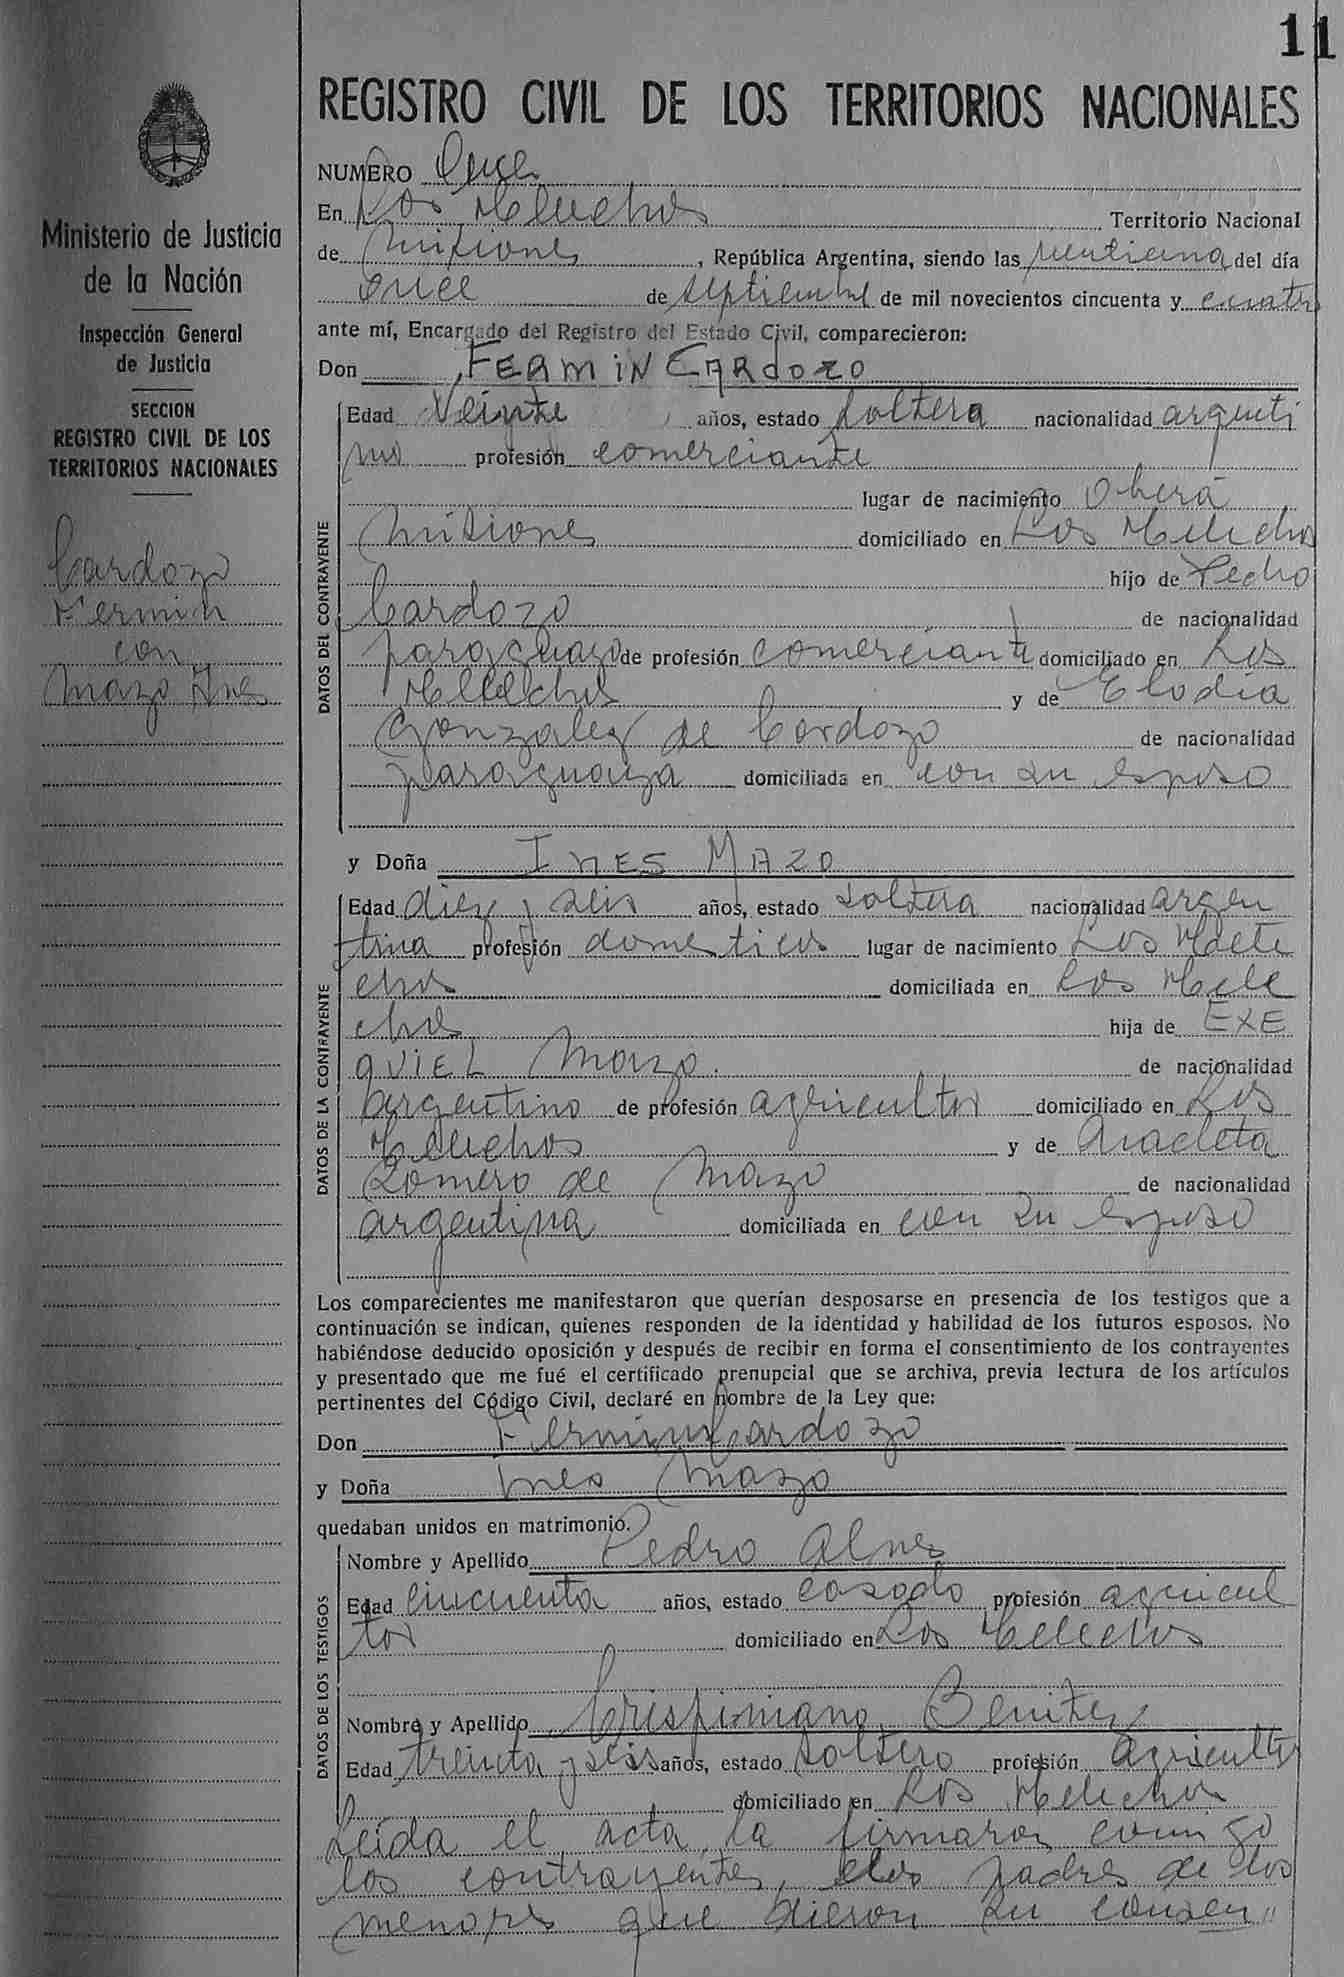 11
REGISTRO CIVIL DE LOS TERRITORIOS NACIONALES
Ministerio de Justicia
de la Nación
Inspección General
de Justicia
SECCION
REGISTRO CIVIL DE LOS
TERRITORIOS NACIONALES
Cardozo
Fermin
con
Mazo Ines
NUMERO Once
En Los Helechos Territorio Nacional
de Misiones, República Argentina, siendo las del día
once de septiembre de mil novecientos cincuenta y cuatro
ante mí, Encargado del Registro del Estado Civil, comparecieron:
Don FERMIN CARdOZO
DATOS DEL CONTRAYENTE
Edad Veinte años, estado soltero nacionalidad argenti
no profesión comerciante
lugar de nacimiento Oberá
Misiones domiciliado en Los Helechos
hijo de Pedro
Cardozo de nacionalidad
paraguayo de profesión comerciante domiciliado en Los
Helechos y de Elodia
Gonzalez de Cardozo de nacionalidad
paraguaya domiciliada en con su esposo
y Doña INES MAZO
DATOS DE LA CONTRAYENTE
Edad diez y seis años, estado soltera nacionalidad argen
tina profesión domesticos lugar de nacimiento Los Hele
chos domiciliada en Los Hele
chos hija de EXE
QUIEL Mazo. de nacionalidad
argentino de profesión agricultor domiciliado en Los
Helechos y de Anacleta
Romero de Mazo de nacionalidad
argentina domiciliada en con su esposo
Los comparecientes me manifestaron que querían desposarse en presencia de los testigos que a
continuación se indican, quienes responden de la identidad y habilidad de los futuros esposos. No
habiéndose deducido oposición y después de recibir en forma el consentimiento de los contrayentes
y presentado que me fué el certificado prenupcial que se archiva, previa lectura de los artículos
pertinentes del Código Civil, declaré en nombre de la Ley que:
Don Fermin Cardozo
y Doña Ines Mazo
quedaban unidos en matrimonio.
DATOS DE LOS TESTIGOS
Nombre y Apellido Pedro Alves
Edad Cincuenta años, estado casado profesión agricul
tor domiciliado en Los Helechos
Nombre y Apellido Crispiniano Benitez
Edad treinta y seis años, estado soltero profesión Agricultor
domiciliado en Los Helechos
Leída el acta, la firmaron conmigo
los contrayentes, los padres de los
menores que dieron su consen"